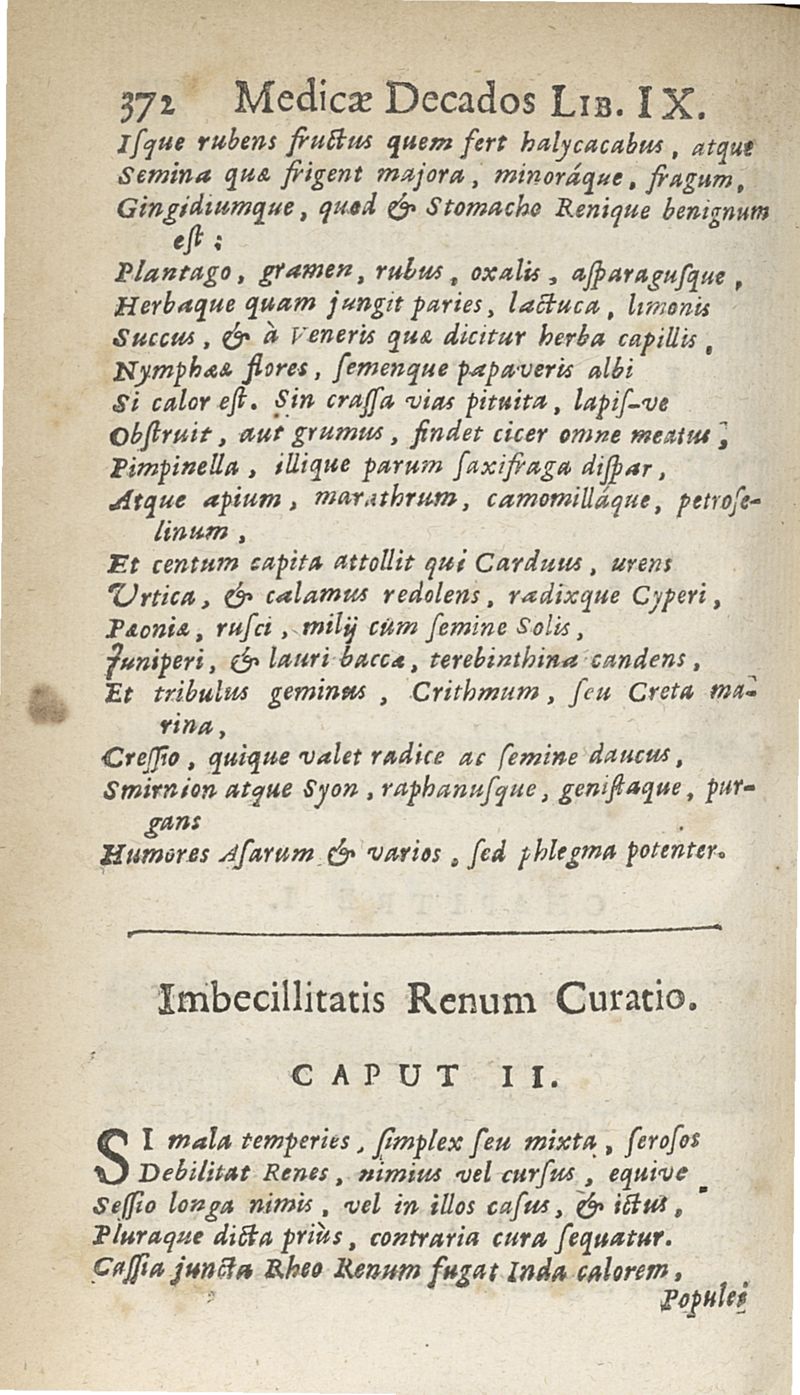 372 Medicæ Decados LIB. IX.
Iſque rubens fructus quem fert halycacabus, atque
Semina quæ frigent majora, minoráque, fragum,
Gingidiumque, quod & Stomacho Renique benignum
eſt;
Plantago, gramen, rubus, oxalis, aſparaguſque,
Herbaque quam jungit paries, lactuca, limonis
Succus, & à Veneris quæ dicitur herba capillis,
Nymphææ flores, ſemenque papaveris albi
Si calor eſt. Sin craſſa vias pituita, lapiſ-ve
Obſtruit, aut grumus, findet cicer omne meatus,
Pimpinella, illique parum ſaxifraga diſpar,
Atque apium, marathrum, camomilláque, petroſe-
linum,
Et centum capita attollit qui Carduus, urens
Urtica, & calamus redolens, radixque Cyperi,
Pæoniæ, ruſci, milij cum ſemine Solis,
Juniperi, & lauri bacca, terebinthina candens,
Et tribulus geminus, Crithmum, ſeu Creta ma-
rina,
Creſſio, quique valet radice ac ſemine daucus,
Smirnion atque Syon, raphanuſque, geniſtaque, pur-
gans
Humores Aſarum & varios, ſed phlegma potenter.
Imbecillitatis Renum Curatio.
CAPUT II.
SI mala temperies, ſimplex ſeu mixta, ſeroſos
Debilitat Renes, nimius vel curſus, equive
Seſſio longa nimis, vel in illos caſus, & ictus,
Pluraque dicta priùs, contraria cura ſequatur.
Caſſia juncta Rheo Renum fugat Inda calorem,
Populei